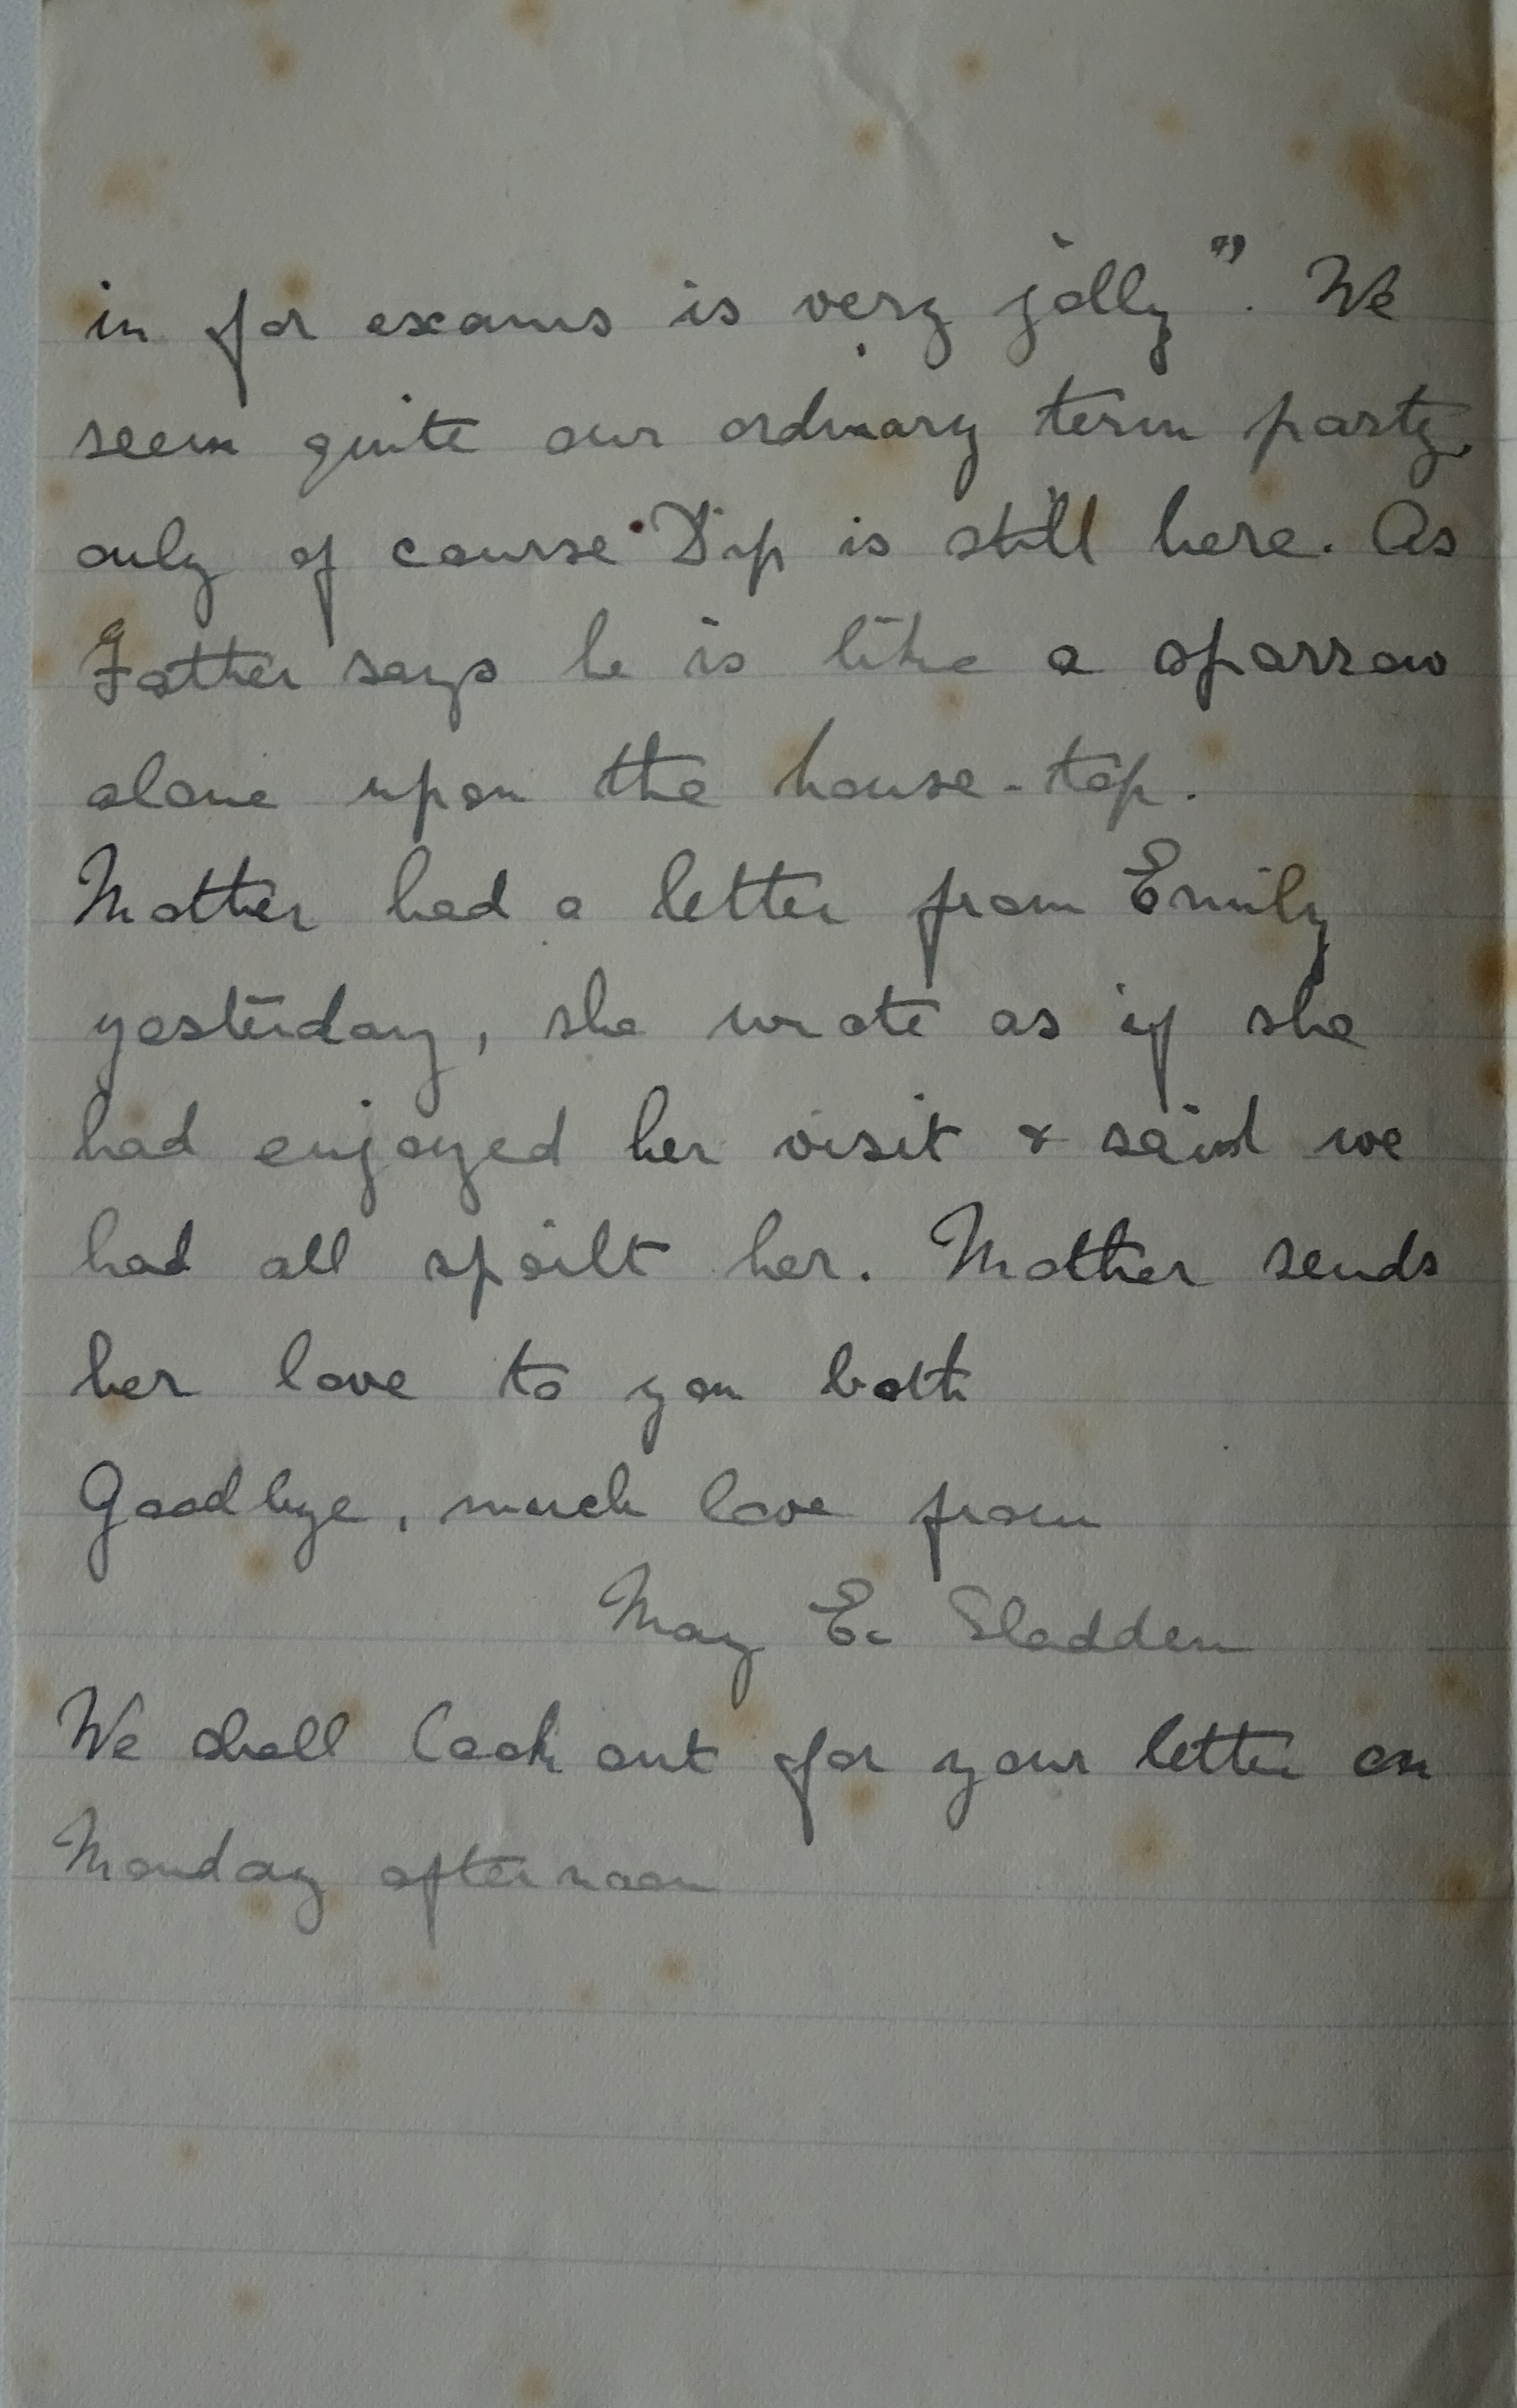 in for exams is very jolly". We
seem quite our ordinary term party,
only of course Dip is still here. As
Father says he is like a sparrow
alone upon the house-top.
Mother had a letter from Emily
yesterday, she wrote as if she
had enjoyed her visit & said we
had all spoilt her. Mother sends
her love to you both
Goodbye, much love from
May E. Sladden
We shall look out for your letter on
Monday afternoon